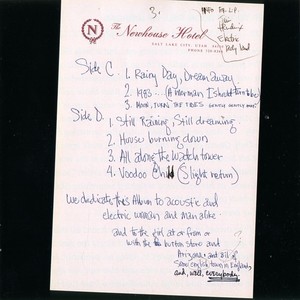 3.
The Newhouse Hotel
SALT LAKE CITY, UTAH
PHONE
Jimi
Hendrix
Electric
Lady Land
Side C. 1. Rainy Day, Dream away
2. 1983... (A merman I should turn to be)
3. MOON, TURN THE TIDES (gently gently away)
Side D. 1. Still Raining, Still dreaming
2. House burning down
3. All along the watch tower
4. Voodoo Child (Slight return)
we dedicate this Album to acoustic and
electric woman and man alike.
and to the girl at or from or
with the button store and
Arizona, and all of
some english town in England
and, well, everybody.